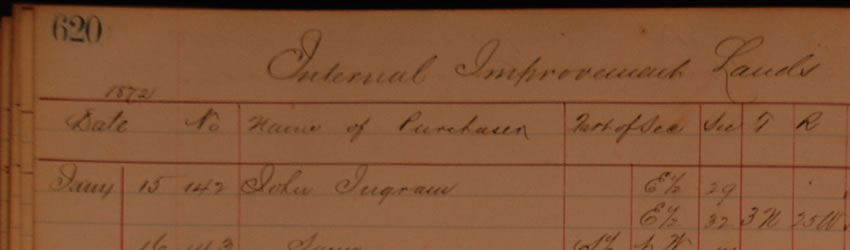 620
Internal Improvement Lands
1872
Date No Name of Purchaser Part of Sec Sec T R
Jany 15 142 John Ingram E½ 29
E½ 32 3N 25W
16 143 Same